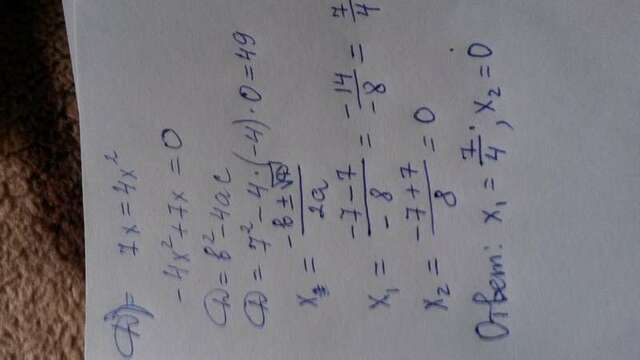 D) 7x = 4x²
-4x² + 7x = 0
D = b² - 4ac
D = 7² - 4·(-4)·0 = 49
x = (-b ± √D) / 2a
x₁ = (-7 - 7) / -8 = -14 / -8 = 7/4
x₂ = (-7 + 7) / 8 = 0
Ответ: x₁ = 7/4; x₂ = 0